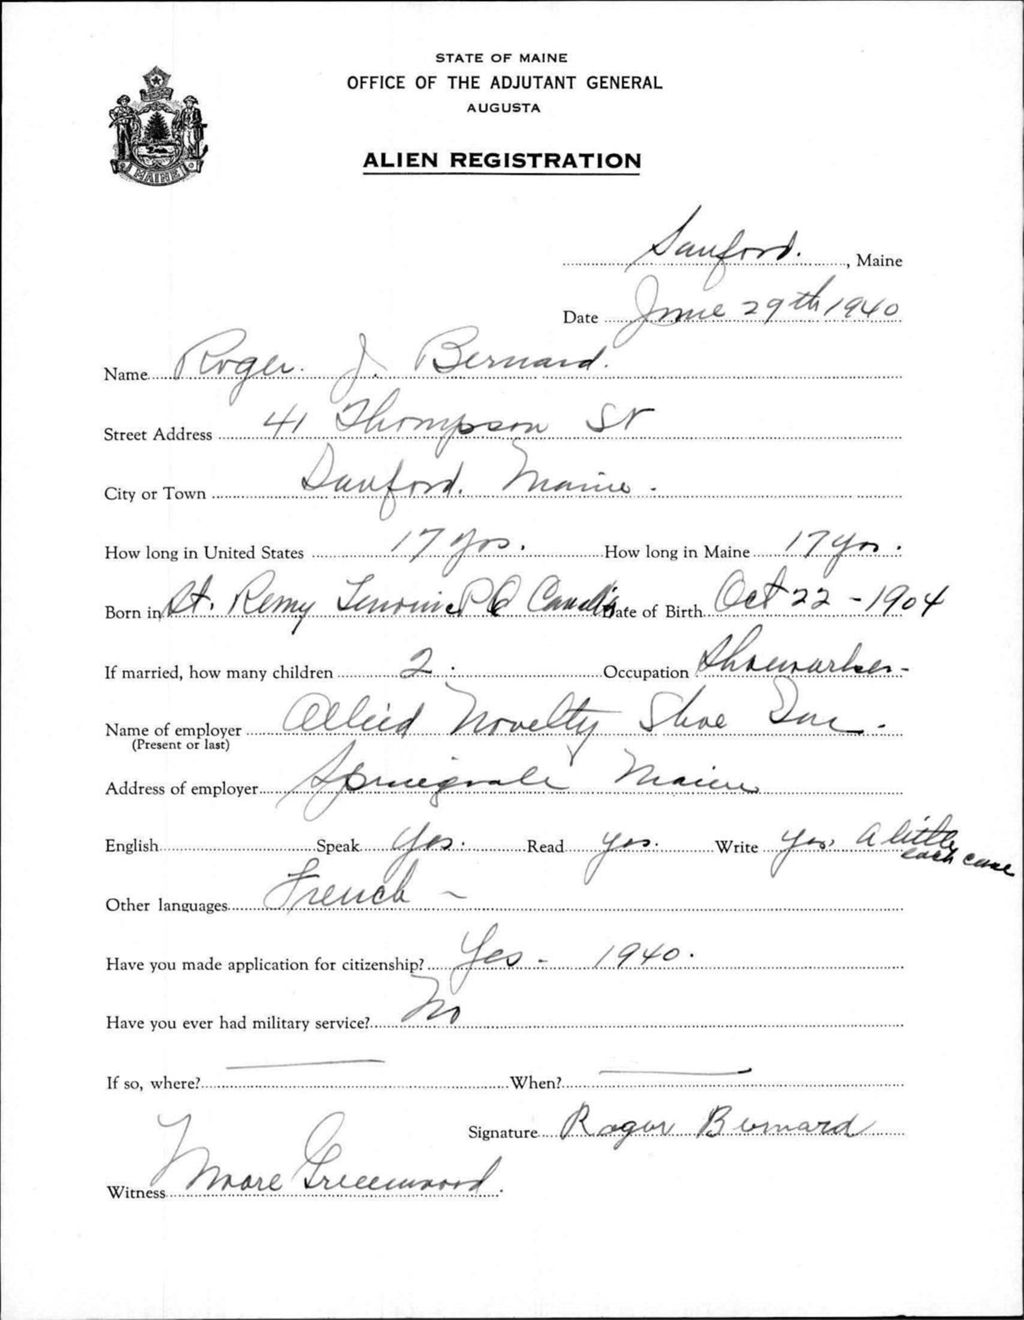 STATE OF MAINE
OFFICE OF THE ADJUTANT GENERAL
AUGUSTA
MAINE
ALIEN REGISTRATION
Sanford. , Maine
Date June 29th 1940
Name Roger. J. Bernard.
Street Address 41 Thompson St
City or Town Sanford. Maine.
How long in United States 17 yrs. How long in Maine 17 yrs.
Born in St. Remy PQ Canada Date of Birth Oct 22 - 1904
If married, how many children 2. Occupation Shoeworker-
Name of employer Allied Novelty Shoe Inc-
(Present or last)
Address of employer Springvale Maine
English Speak Yes. Read yes. Write yes, a little
each case
Other languages French -
Have you made application for citizenship? Yes - 1940.
Have you ever had military service? No
If so, where? When?
Signature Roger Bernard
Witness Moore Greenwood.